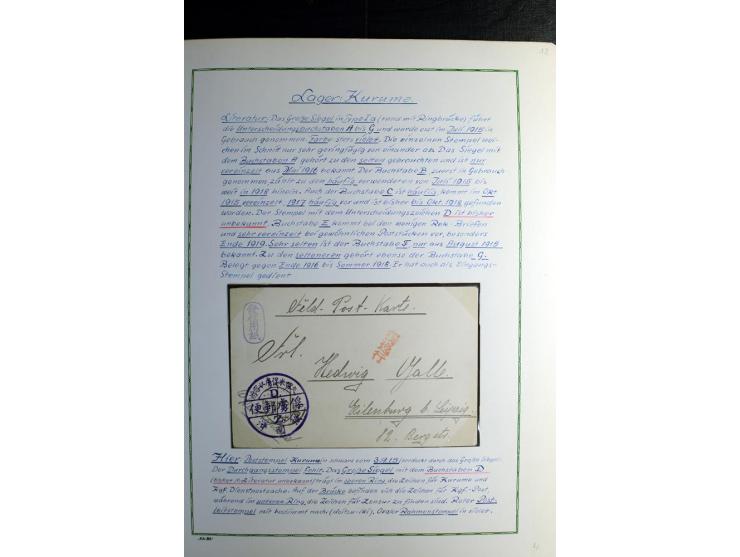 12
Lager: Kurume
Literatur: Das Große Siegel in Type Ia (rund mit Ringbrücke) führt
die Unterscheidungsbuchstaben A bis G und wurde erst im Juli 1915 in
Gebrauch genommen. Farbe stets violet. Die einzelnen Stempel wei-
chen im Schnitt nur sehr geringfügig von einander ab. Das Siegel mit
dem Buchstaben A gehört zu den selten gebrauchten und ist nur
vereinzelt aus Mai 1916 bekannt. Der Buchstabe B zuerst in Gebrauch
genommen zählt zu den häufig verwendeten von Juli 1915 bis
weit in 1918 hinein. Auch der Buchstabe C ist häufig, kommt im Okt
1915 vereinzelt, 1917 häufig vor und ist bisher bis Okt. 1918 gefunden
worden. Der Stempel mit dem Unterscheidungszeichen D ist bisher
unbekannt. Buchstabe E kommt bei den wenigen Reko-Briefen
und sehr vereinzelt bei gewöhnlichen Poststücken vor, besonders
Ende 1919. Sehr selten ist der Buchstabe F, nur aus August 1918
bekannt. Zu den selteneren gehört ebenso der Buchstabe G.
Belegt gegen Ende 1916 bis Sommer 1918. Er hat auch als Eingangs-
Stempel gedient
Feld-Post-Karte.
Frl.
Hedwig
Eilenburg b. Leipzig
D
Hier: Poststempel Kurume in schwarz vom
Der Durchgangsstempel fehlt. Das Große Siegel mit dem Buchstaben D
(bisher in Literatur unbekannt) trägt im oberen Ring die Zeichen für Kurume und
Kgf. Dienstsache. Auf der Brücke befinden sich die Zeichen für Kgf.-Post
während im unteren Ring die Zeichen für Zensur zu finden sind. Roter Post-
leitstempel mit bestimmt nach: (doitsu-iki). Ovaler Rahmenstempel in violet.